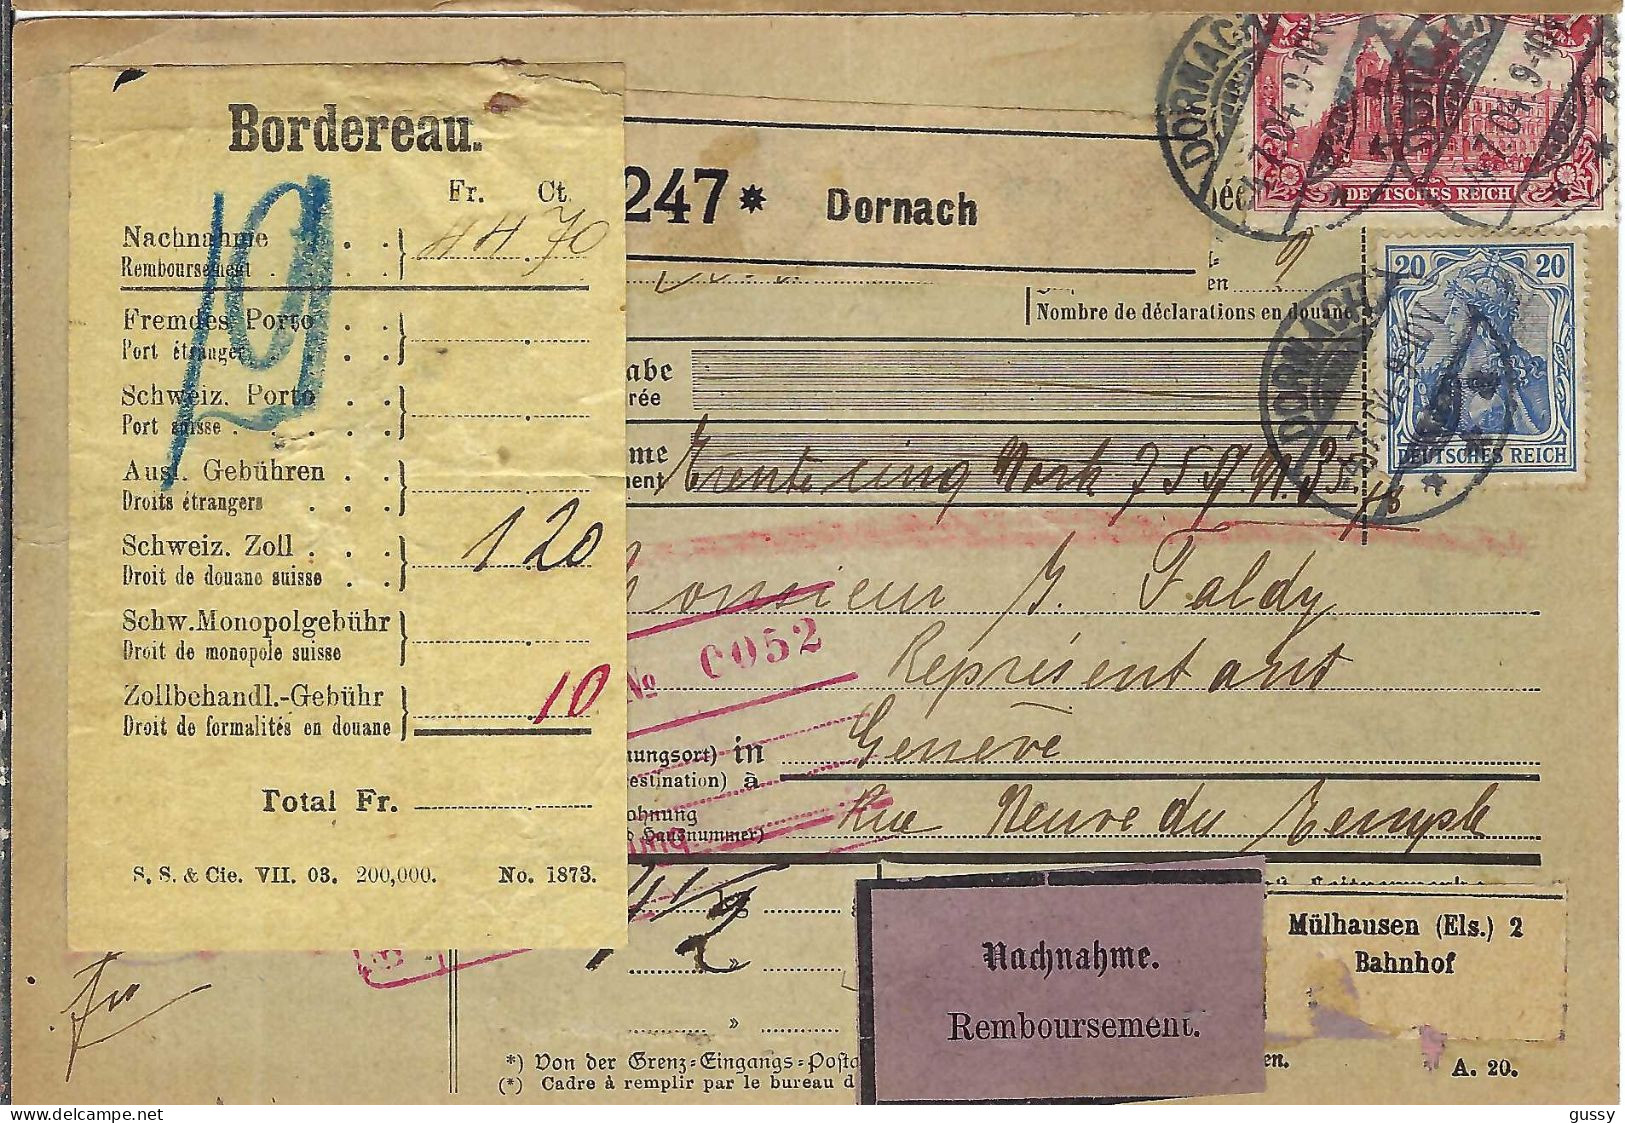 Bordereau.
Fr. Ct.
Nachnahme
Remboursement
44 70
Fremdes Porto
Port étranger
Schweiz. Porto
Port suisse
Ausl. Gebühren
Droits étrangers
Schweiz. Zoll
Droit de douane suisse
1 20
Schw. Monopolgebühr
Droit de monopole suisse
Zollbehandl.-Gebühr
Droit de formalités en douane
10
Total Fr.
S. S. & Cie. VII. 03. 200,000. No. 1873.
19
247* Dornach
DORNACH
DORNACH
DEUTSCHES REICH
en
Nombre de déclarations en douane
20 20
DEUTSCHES REICH
DORNACH
abe
rée
me
ment
Trente cinq Mark 75
Monsieur J. Faldy
No 6052
Représentant
ungsort) in
estination) à
Genève
ohnung
Hausnummer)
Rue Neuve du Temple
kg
»
»
Nachnahme.
Remboursement.
Mülhausen (Els.) 2
Bahnhof
*) Von der Grenz-Eingangs-Posta
(*) Cadre à remplir par le bureau d
en.
A. 20.
gussy
© delcampe.net